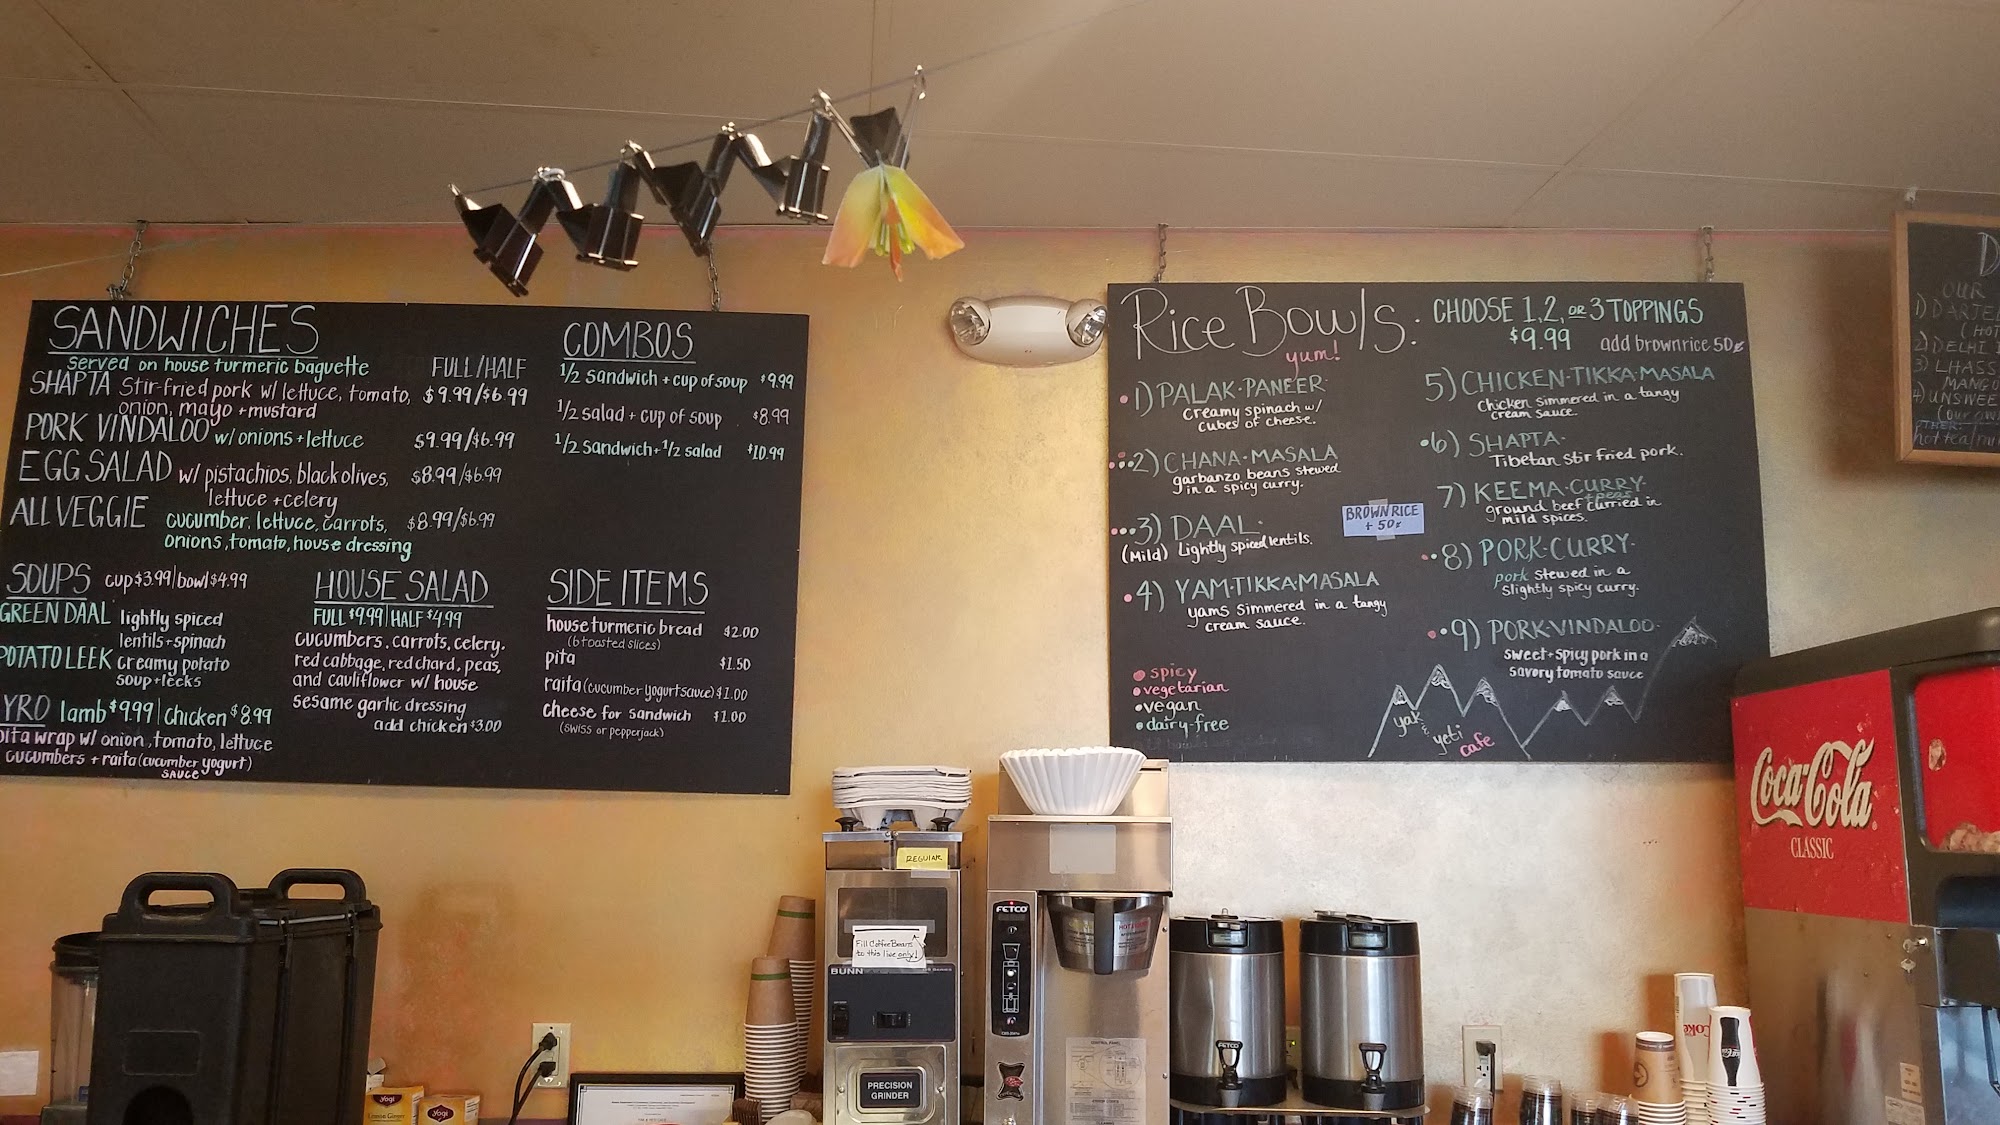 SANDWICHES
served on house turmeric baguette
FULL/HALF
SHAPTA Stir-fried pork w/ lettuce, tomato, $9.99/$6.99
onion, mayo + mustard
PORK VINDALOO w/ onions + lettuce $9.99/$6.99
EGG SALAD w/ pistachios, black olives, $8.99/$6.99
lettuce + celery
ALL VEGGIE cucumber, lettuce, carrots, $8.99/$6.99
onions, tomato, house dressing
COMBOS
1/2 sandwich + cup of soup $9.99
1/2 salad + cup of soup $8.99
1/2 sandwich + 1/2 salad $10.99
SOUPS cup $3.99 | bowl $4.99
GREEN DAAL lightly spiced
lentils + spinach
POTATO LEEK creamy potato
soup + leeks
YRO lamb $9.99 | chicken $8.99
pita wrap w/ onion, tomato, lettuce
cucumbers + raita (cucumber yogurt)
SAUCE
HOUSE SALAD
FULL $9.99 | HALF $4.99
cucumbers, carrots, celery,
red cabbage, red chard, peas,
and cauliflower w/ house
sesame garlic dressing
add chicken $3.00
SIDE ITEMS
house turmeric bread $2.00
(6 toasted slices)
pita $1.50
raita (cucumber yogurt sauce) $1.00
cheese for sandwich $1.00
(SWISS or pepperjack)
Rice Bowls:
yum!
CHOOSE 1, 2, OR 3 TOPPINGS
$9.99 add brown rice 50¢
1) PALAK·PANEER·
creamy spinach w/
cubes of cheese.
2) CHANA·MASALA
garbanzo beans stewed
in a spicy curry.
3) DAAL·
(Mild) Lightly spiced lentils.
4) YAM·TIKKA·MASALA
yams simmered in a tangy
cream sauce.
• spicy
• vegetarian
• vegan
• dairy-free
BROWN RICE
+ 50¢
5) CHICKEN·TIKKA·MASALA
Chicken simmered in a tangy
cream sauce.
6) SHAPTA·
Tibetan stir fried pork.
7) KEEMA·CURRY·
+ peas
ground beef curried in
mild spices.
8) PORK·CURRY·
pork stewed in a
slightly spicy curry.
9) PORK·VINDALOO·
sweet + spicy pork in a
savory tomato sauce
yak &
yeti
cafe
D
OUR
1) DARJEE
(HOT
2) DELHI
3) LHASS
MANGO
4) UNSWEE
(our own
OTHER:
hot tea/
Coca-Cola
CLASSIC
REGULAR
Fill Coffee Beans
to this line only!
BUNN
PRECISION
GRINDER
FETCO
FETCO
yogi
Lemon Ginger
yogi
Coke